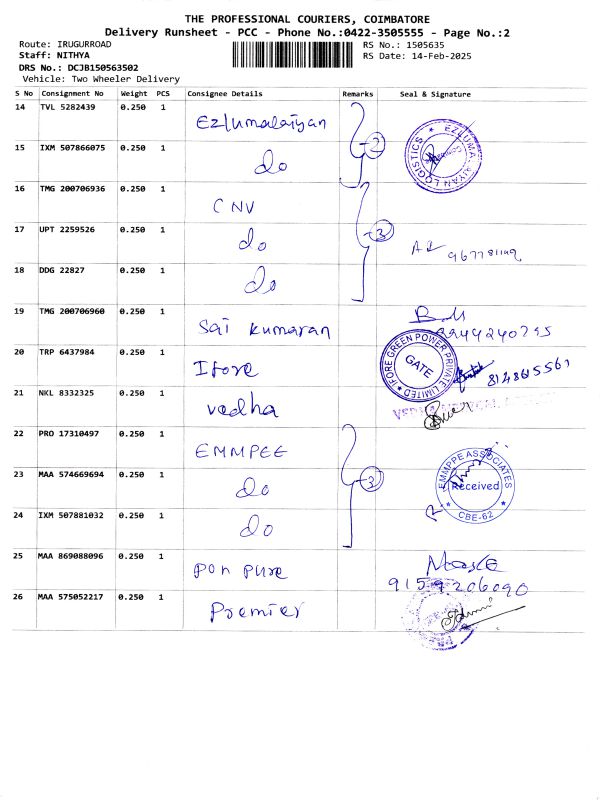 THE PROFESSIONAL COURIERS, COIMBATORE
Delivery Runsheet - PCC - Phone No.:0422-3505555 - Page No.:2
Route: IRUGURROAD
Staff: NITHYA
DRS No.: DCJB150563502
Vehicle: Two Wheeler Delivery
RS No.: 1505635
RS Date: 14-Feb-2025
S No Consignment No Weight PCS Consignee Details Remarks Seal & Signature
14 TVL 5282439 0.250 1 Ezhumalaiyan
15 IXM 507866075 0.250 1 do 2
EZHUMALAIYAN LOGISTICS
16 TMG 200706936 0.250 1 CNV
17 UPT 2259526 0.250 1 do 3
9677811149
18 DDG 22827 0.250 1 do
19 TMG 200706960 0.250 1 Sai Kumaran
9944240755
20 TRP 6437984 0.250 1 Ifore
IFORE GREEN POWER PRIVATE LIMITED
GATE
8148615561
21 NKL 8332325 0.250 1 vedha
22 PRO 17310497 0.250 1 EMMPEE
23 MAA 574669694 0.250 1 do 3
EMMPPE ASSOCIATES
Received
CBE-62
24 IXM 507881032 0.250 1 do
25 MAA 869088096 0.250 1 Pon Pure
9159206090
26 MAA 575052217 0.250 1 Premier